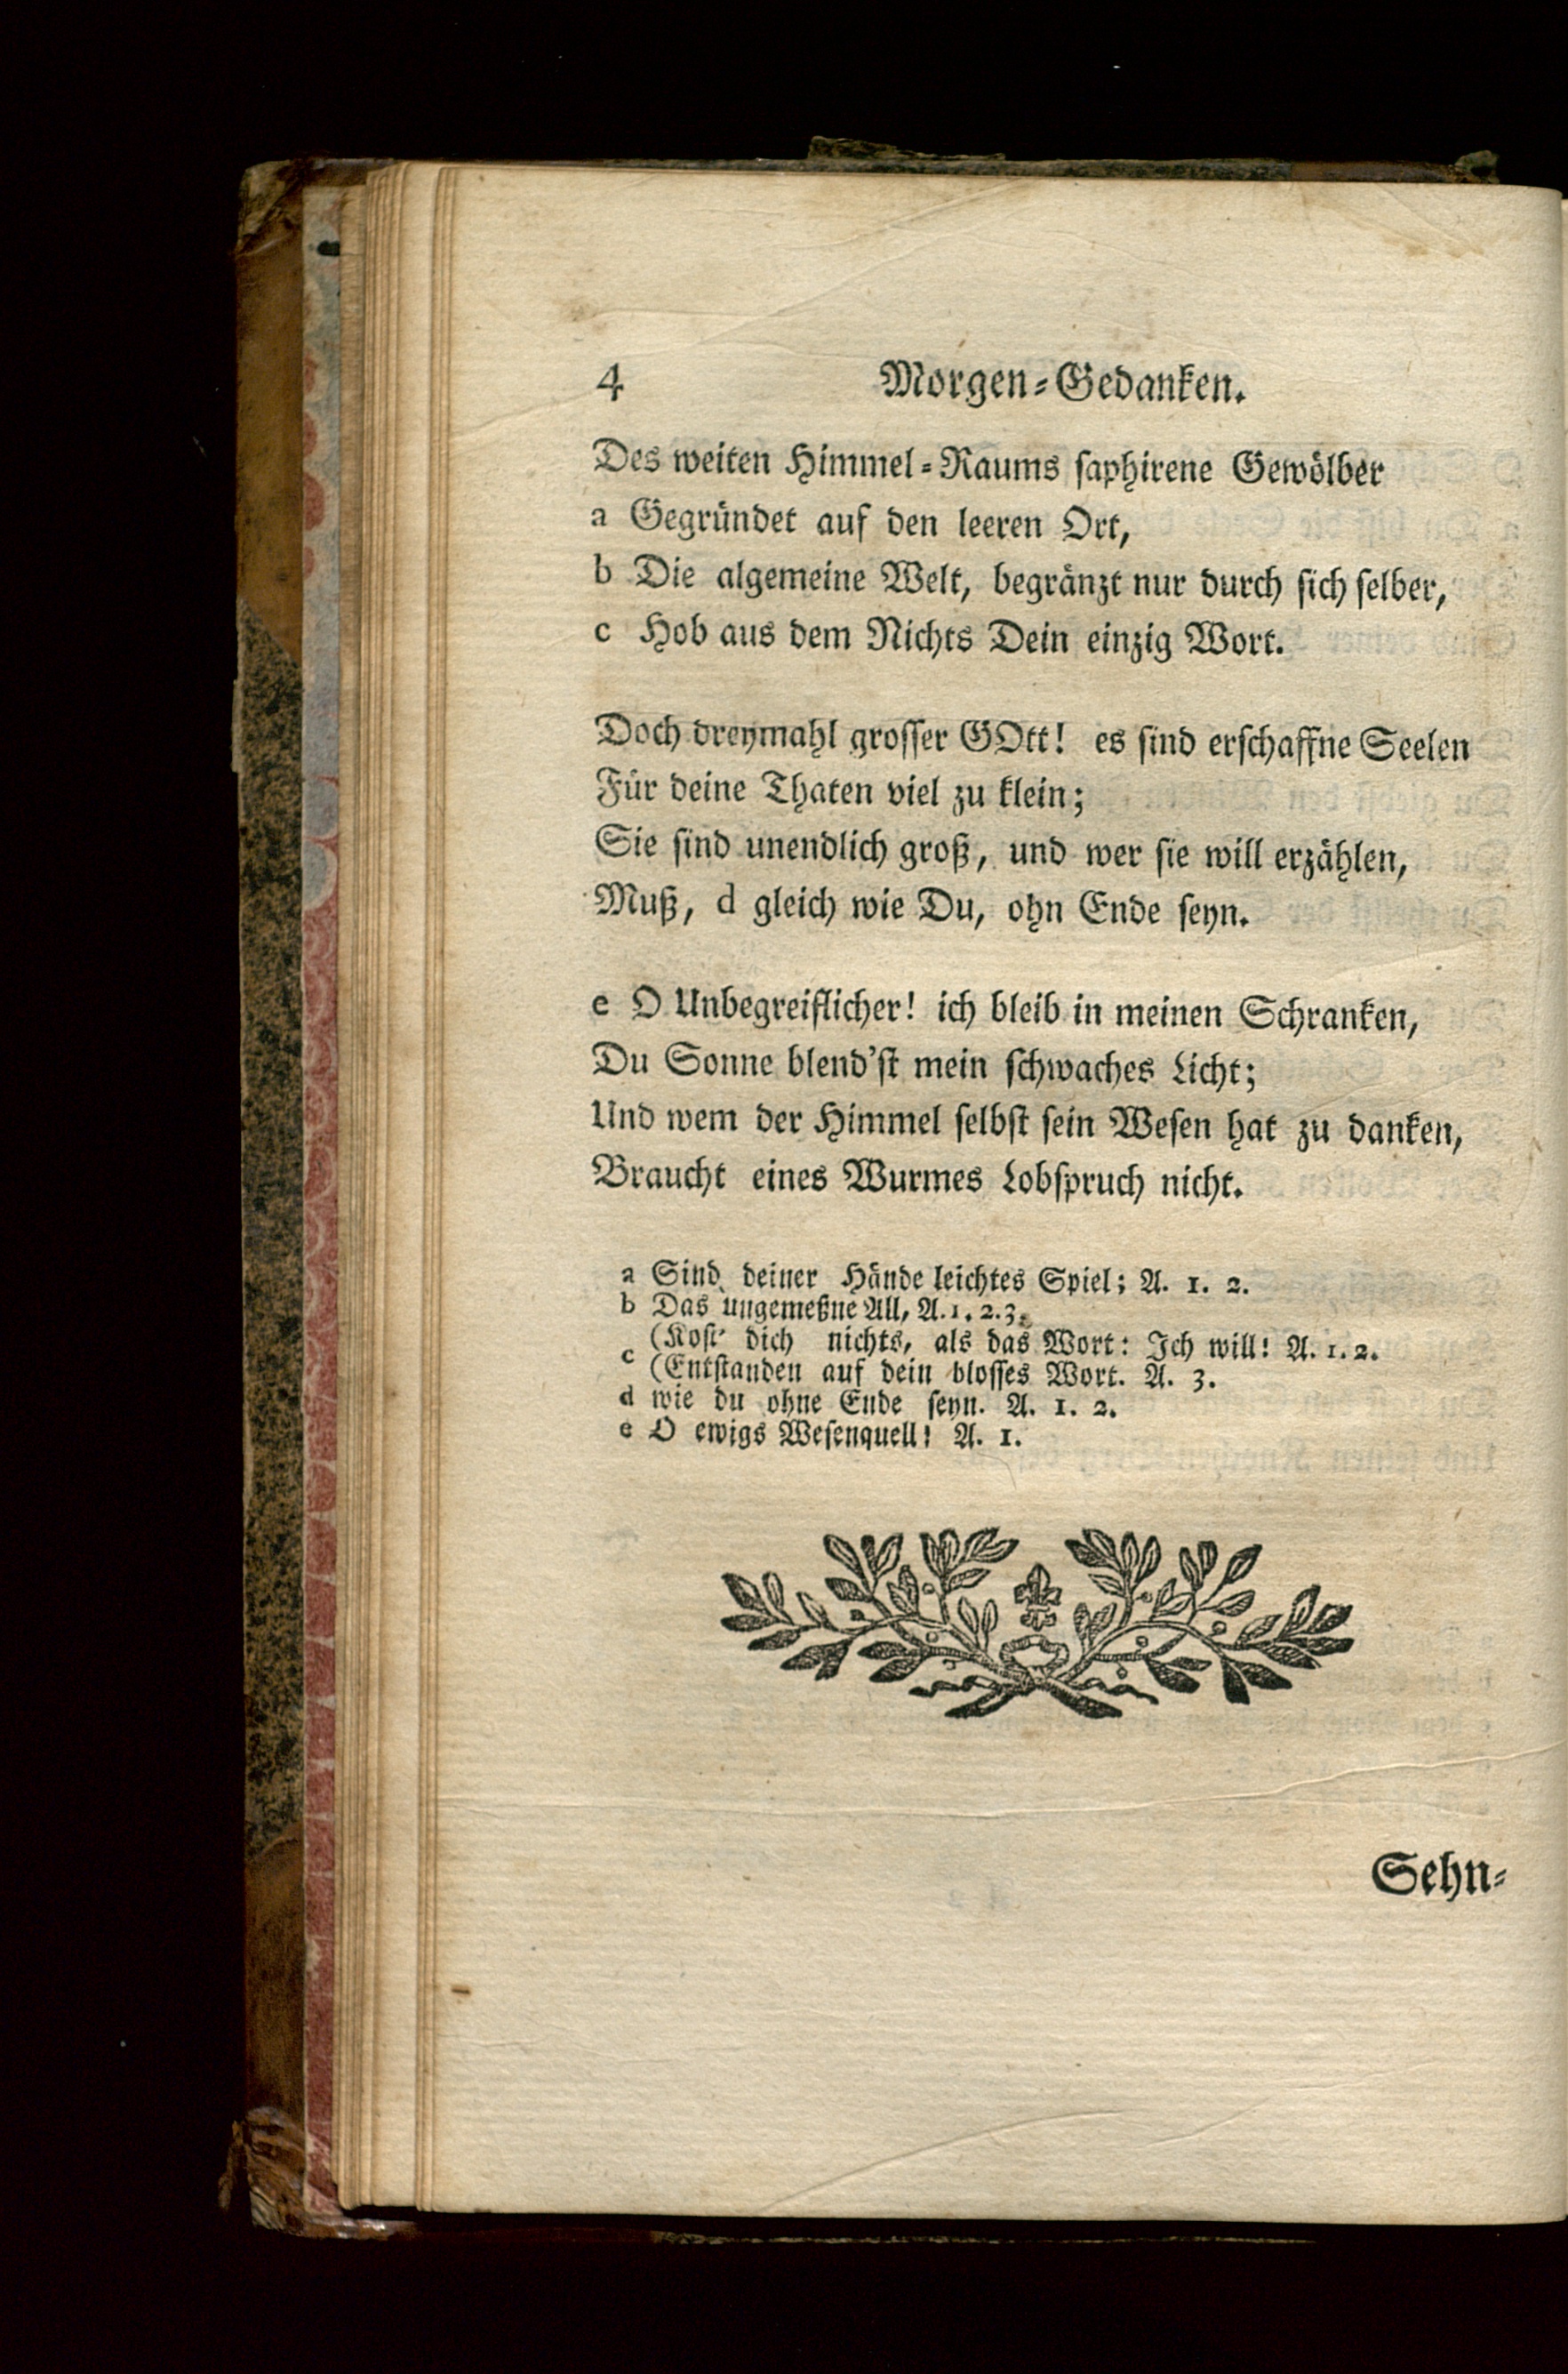 4 Morgen-Gedanken.
Des weiten Himmel-Raums saphirene Gewölber
a Gegründet auf den leeren Ort,
b Die algemeine Welt, begränzt nur durch sich selber,
c Hob aus dem Nichts Dein einzig Wort.
Doch dreymahl grosser GOtt! es sind erschaffne Seelen
Für deine Thaten viel zu klein;
Sie sind unendlich groß, und wer sie will erzählen,
Muß, d gleich wie Du, ohn Ende seyn.
e O Unbegreiflicher! ich bleib in meinen Schranken,
Du Sonne blend'st mein schwaches Licht;
Und wem der Himmel selbst sein Wesen hat zu danken,
Braucht eines Wurmes Lobspruch nicht.
a Sind deiner Hände leichtes Spiel; A. 1. 2.
b Das ungemeßne All, A. 1. 2. 3.
(Kost' dich nichts, als das Wort: Ich will! A. 1. 2.
c
(Entstanden auf dein blosses Wort. A. 3.
d wie du ohne Ende seyn. A. 1. 2.
e O ewigs Wesenquell! A. 1.
Sehn-